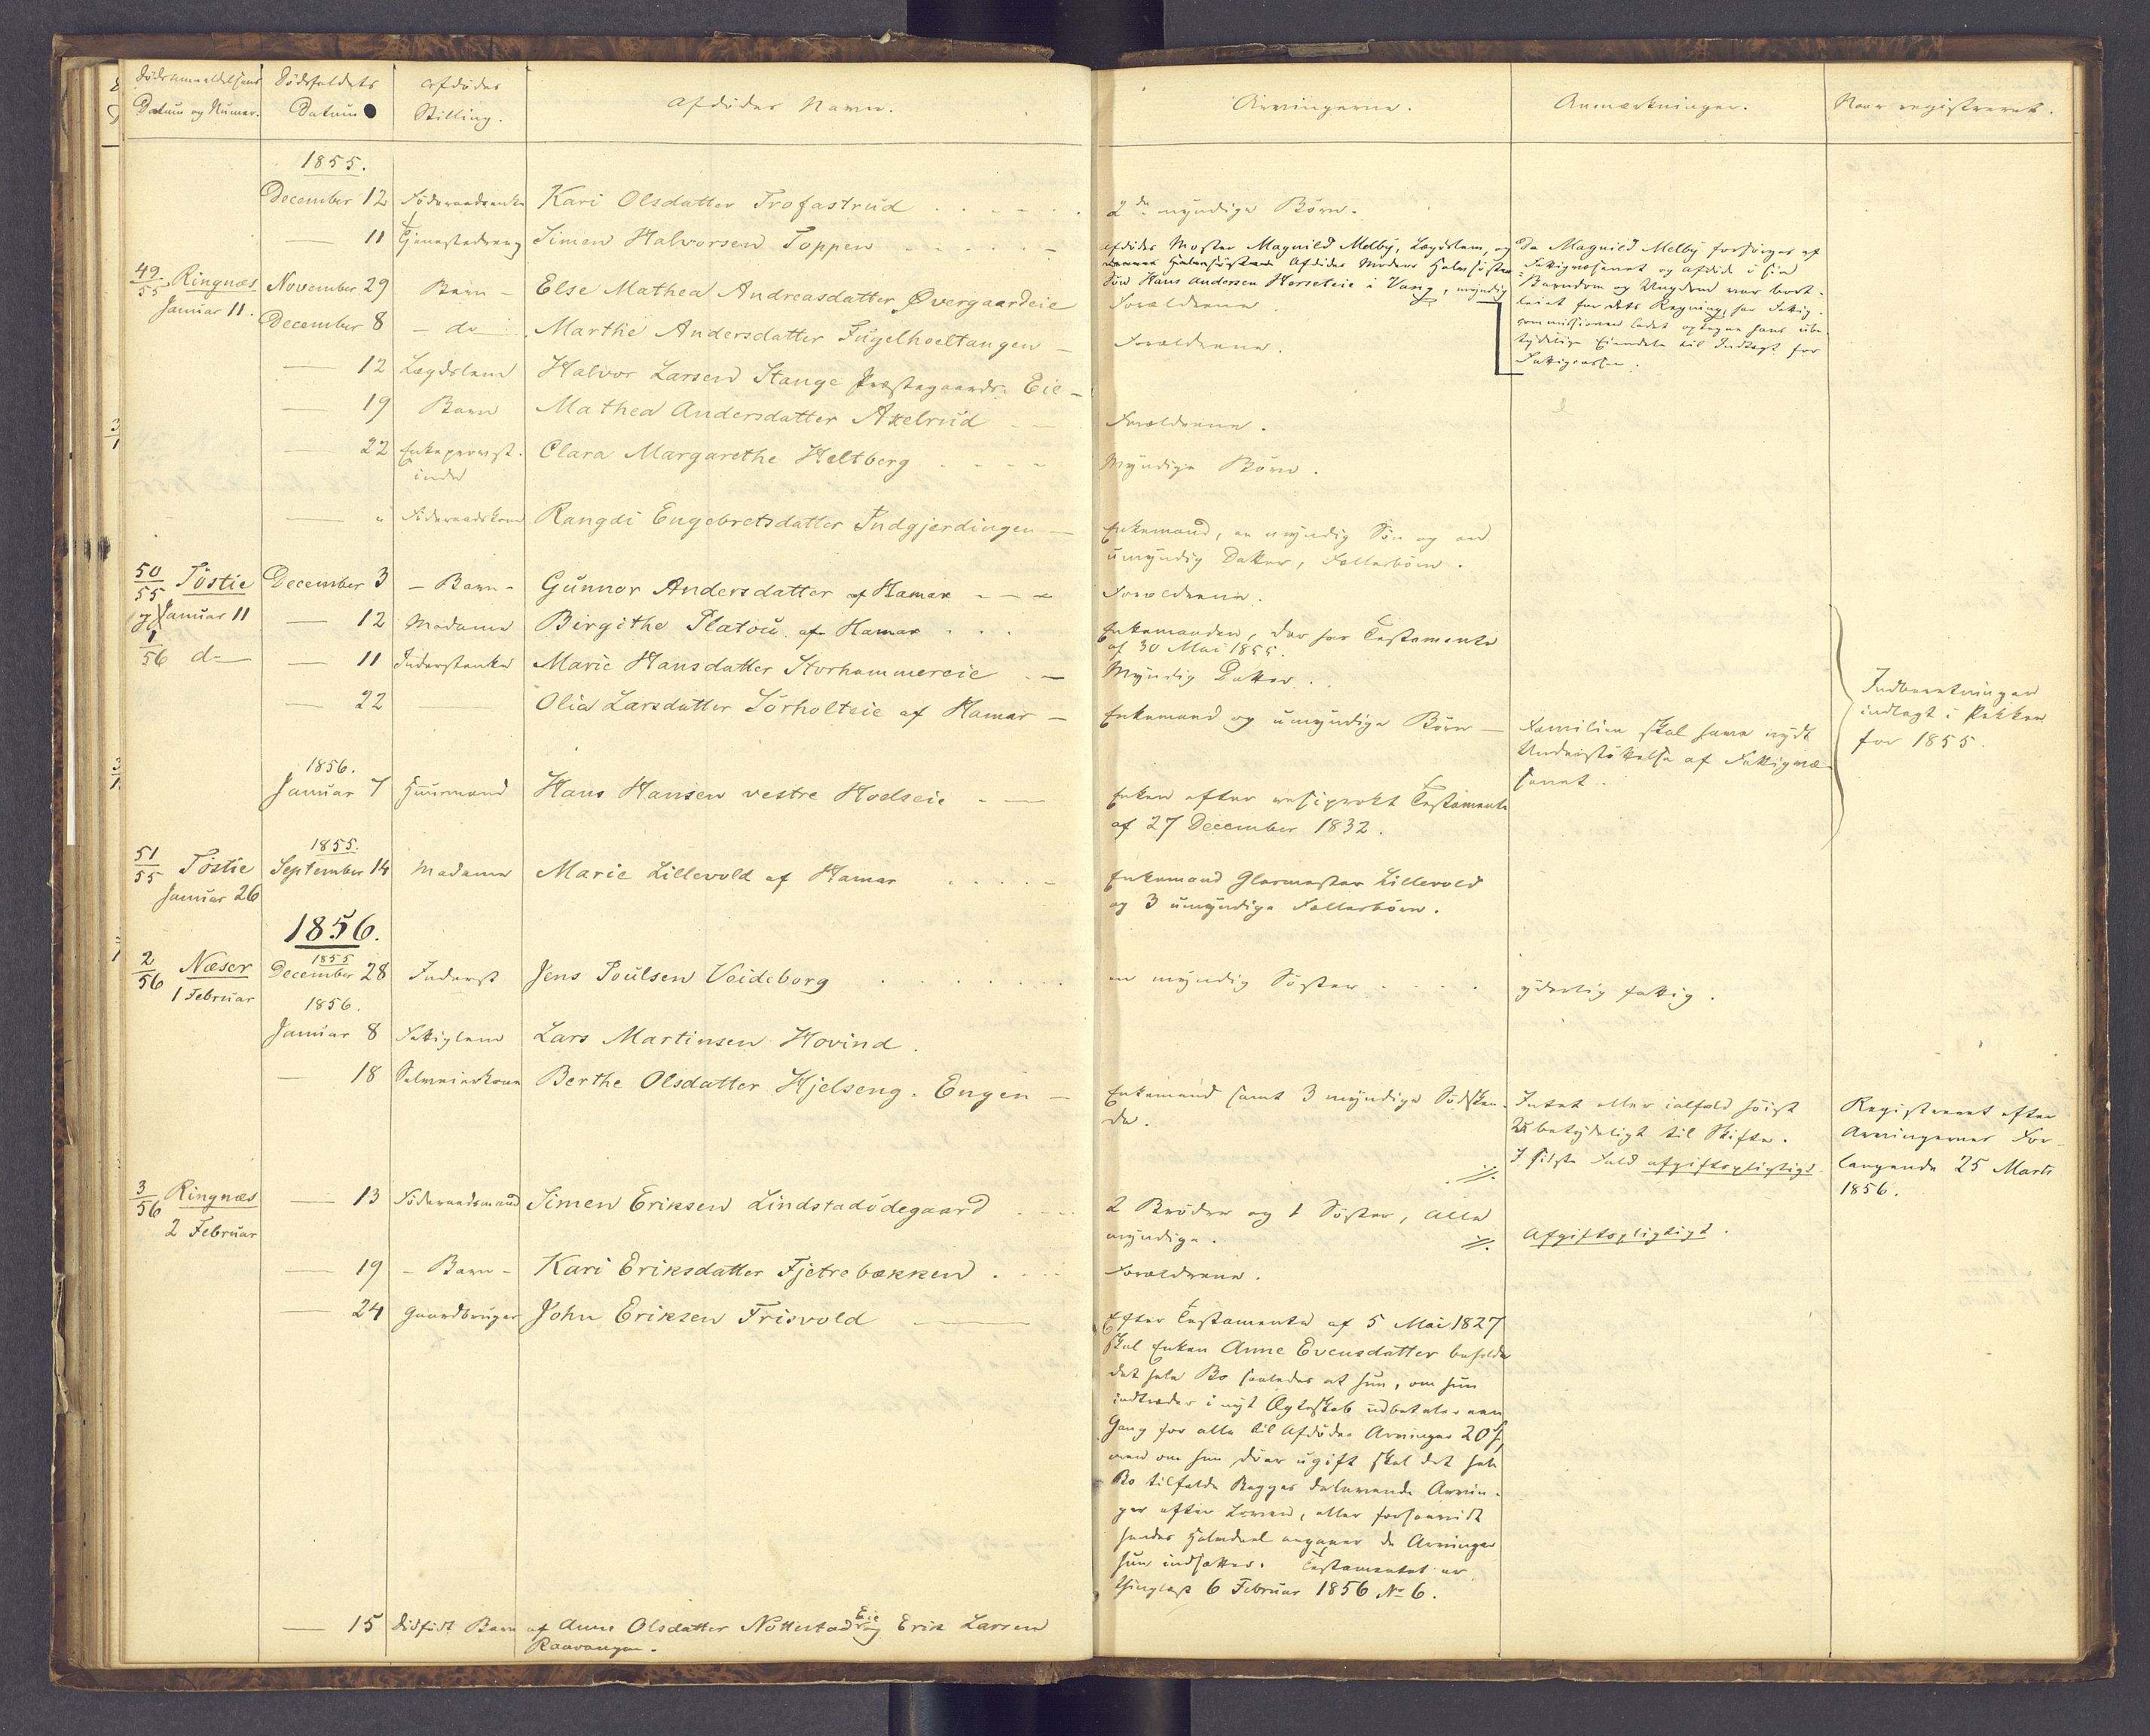 Dødsanmeldelsens Datum og Numer.
Dødsfaldets Datum
Afdødes Stilling.
Afdødes Navn.
Arvingerne.
Anmærkninger.
Naar registreret.
1855.
December 12 Føderaadsenke Kari Olsdatter Trofastrud 2de myndige Børn.
11 Tjenestedreng Simen Halvorsen Toppen
Afdødes Moster Magnild Melby, Lægdslem, og
Afdødes Moders Halvsøsters
Søn Hans Andersen Horseteie i Vang, myndig
Da Magnild Melby forsørges af
Fattigvæsenet og Afdøde i sin
Barndom og Ungdom var bort-
leiet for dets Regning, har Fattig-
commissionen ladet optegne hans ube-
tydelige Eiendele til Indtægt for
Fattigcassen.
49/55 Ringnæs November 29 Barn Else Mathea Andreasdatter Øvergaardeie Forældrene.
Januar 11. December 8 do Marthe Andersdatter Fugelhoeltangen Forældrene.
12 Lægdslem Halvor Larsen Stange Præstegaards Eie
19 Barn Mathea Andersdatter Axelrud Forældrene.
22 Enkeprovst-
inde Clara Margarethe Heltberg Myndige Børn.
" Føderaadskone Rangdi Engebretsdatter Indgjerdingen Enkemand, en myndig Søn og en
umyndig Datter, Fællesbørn.
50/55 Tøstie December 3 Barn Gunnor Andersdatter af Hamar Forældrene.
og Januar 11 12 Madame Birgithe Platou af Hamar Enkemanden, der har Testamente
af 30 Mai 1855.
1/56 do 11 Inderstenke Marie Hansdatter Storhammereie Myndig Datter.
22 Olia Larsdatter Sørholteie af Hamar Enkemand og umyndige Børn
Familien skal have nydt
Understøttelse af Fattigvæ-
senet.
Indberetningen
indlagt i Pakken
for 1855.
1856.
Januar 7 Huusmand Hans Hansen vestre Hoelseie Enken efter reciprokt Testamente
af 27 December 1832.
1855.
51/55 Tøstie September 14 Madame Marie Lillevold af Hamar Enkemand Glarmester Lillevold
Januar 26 og 3 umyndige Fællesbørn.
1856.
1855
2/56 Næser December 28 Inderst Jens Poulsen Veideborg en myndig Søster yderlig fattig.
1 Februar
1856.
Januar 8 Fattiglem Lars Martinsen Hovind.
18 Selveierkone Berthe Olsdatter Hjelseng-Engen Enkemand samt 3 myndige Sødsken-
de.
Intet eller ialfald høist
ubetydeligt til Skifte.
I sidste Fald afgiftspligtigt.
Registreret efter
Arvingernes For-
langende 25 Marts
1856.
3/56 Ringnæs 13 Føderaadsmand Simen Eriksen Lindstadødegaard 2 Brødre og 1 Søster, alle
2 Februar myndige. Afgiftspligtigt.
19 Barn Kari Eriksdatter Fjetrebækken Forældrene.
24 Gaardbruger John Eriksen Frisvold
Efter Testamente af 5 Mai 1827
skal Enken Anne Evensdatter beholde
det hele Bo saaledes at hun, om hun
indtræder i nyt Ægteskab udbetaler een
Gang for alle til Afdødes Arvinger 20 S,
men om hun døer ugift skal det hele
Bo tilfalde Begges dalevende Arvin-
ger efter Loven, eller forsaavidt
hendes Halvdeel angaaer de Arvinger
hun indsætter. Testamentet er
thinglæst 6 Februar 1856 No 6.
15 dødfødt Barn af Anne Olsdatter Nøttestad Eie og Erik Larsen
Raavangen.